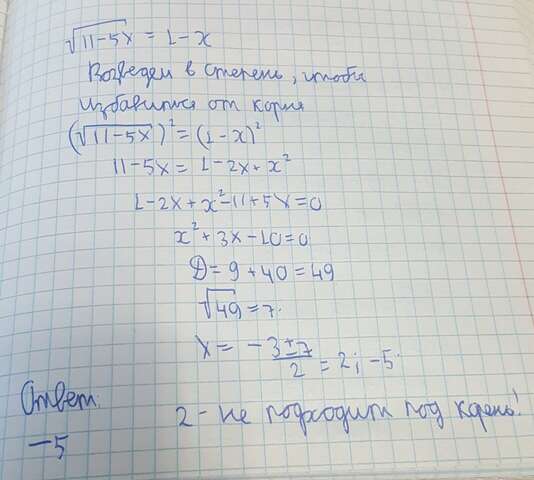 √11-5x = 1-x
Возведем в степень, чтобы
избавится от корня
(√11-5x)² = (1-x)²
11-5x = 1-2x+x²
1-2x+x²-11+5x=0
x²+3x-10=0
D = 9+40=49
√49 = 7.
x = -3±7/2 = 2; -5.
Ответ:
2 - не подходит под корень!
-5